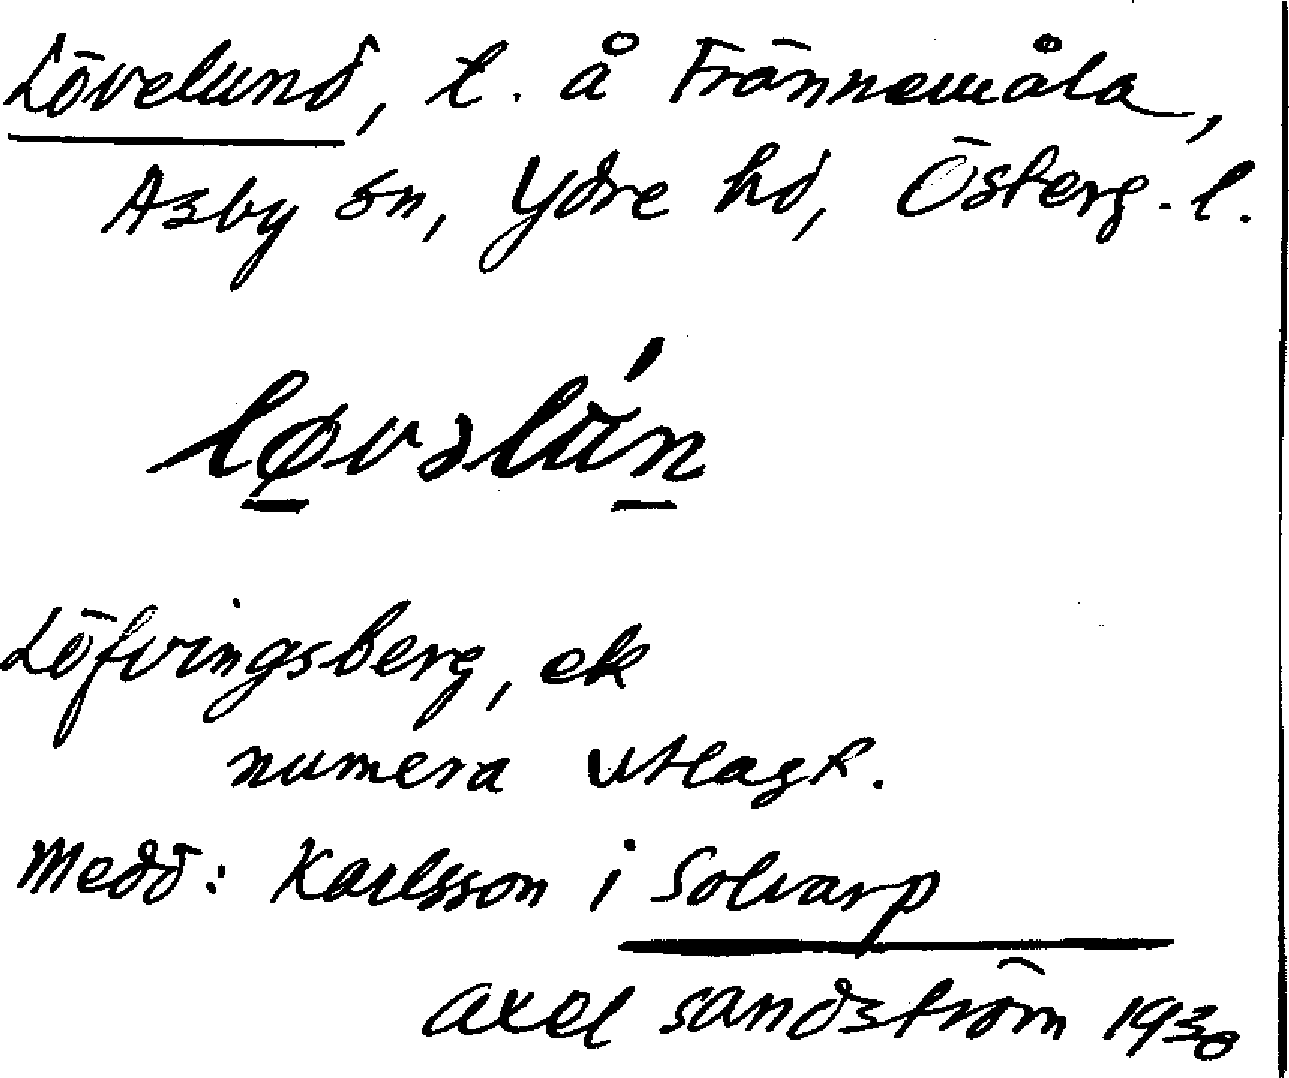 Lövelund, t. å Frännemåla,
Asby sn, Ydre hd, Österg. l.
løvəlún
Löfvingsberg, ek
numera utlagt.
Medd: Karlsson i Solvarp
Axel Sandström 1930